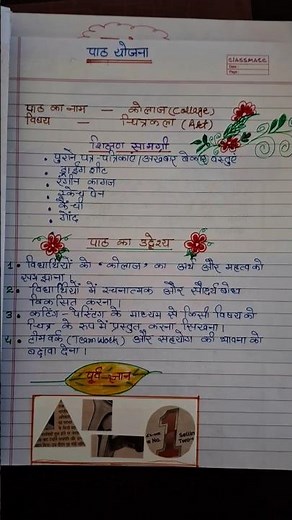 पाठ योजना
CLASSMATE
Date :
Page :
पाठ का नाम — कोलाज (Collage)
विषय — चित्रकला (Art)
शिक्षण सामग्री
• पुराने पत्र-पत्रिकाएं/अखबार बेकार वस्तुएं
• ड्राईंग शीट
• रंगीन कागज
• स्केच पेन
• कैंची
• गोंद
पाठ का उद्देश्य
1. विद्यार्थियों को "कोलाज" का अर्थ और महत्व को समझाना।
2. विद्यार्थियों में रचनात्मक और सौंदर्य बोध
विकसित करना।
3. कटिंग - पेस्टिंग के माध्यम से किसी विषय को
चित्र के रूप में प्रस्तुत करना सिखना।
4. टीमवर्क (Teamwork) और सहयोग की भावना को
बढ़ावा देना।
पूर्व ज्ञान
1